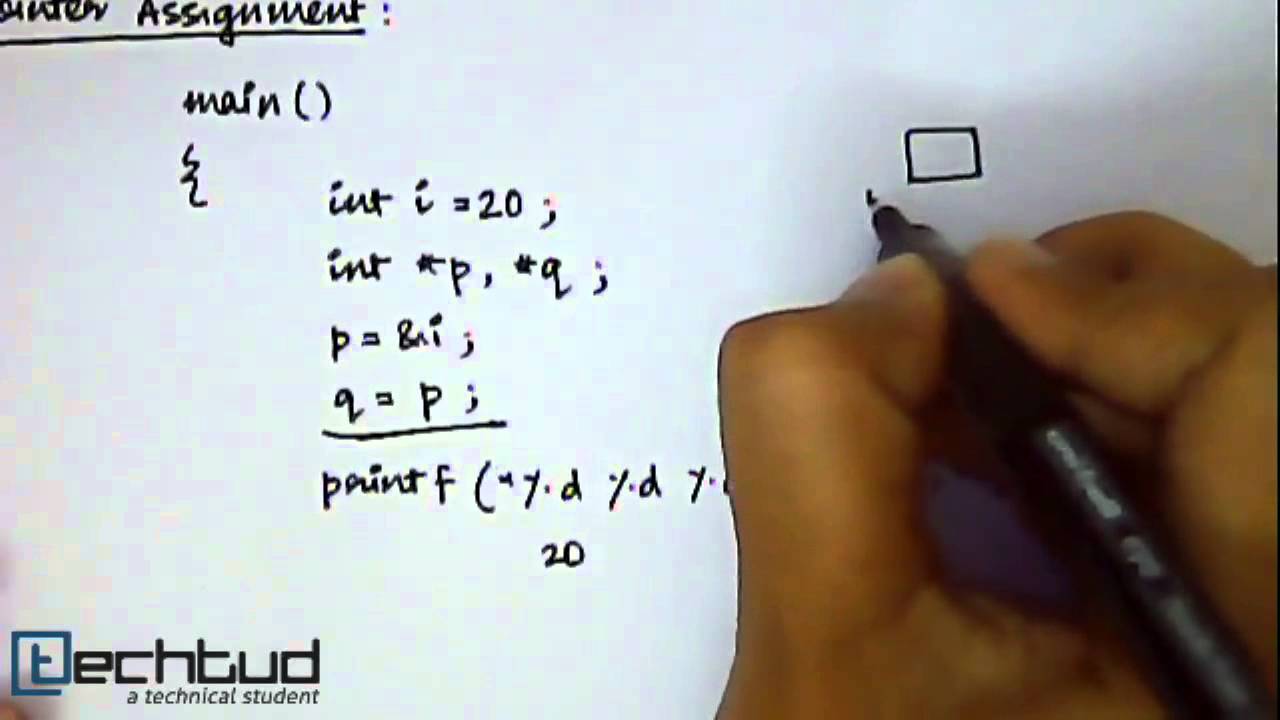 Assignment :
main()
{
int i = 20 ;
int *p, *q ;
p = &i ;
q = p ;
printf ("%d %d
20
i
techtud
a technical student